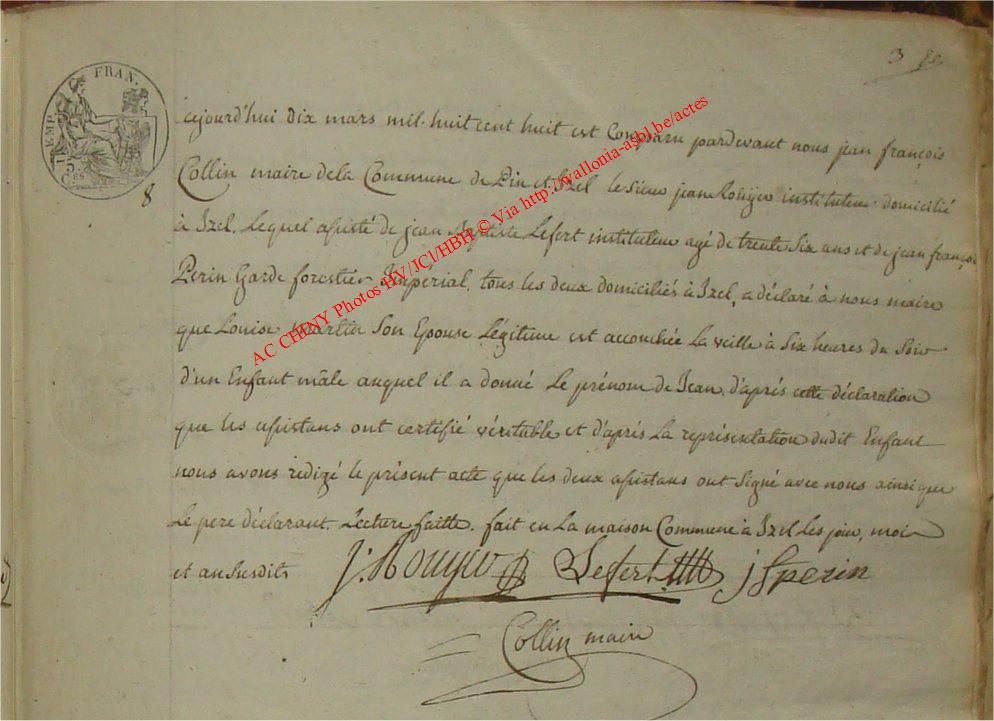 3
TIMP. FRAN.
8
aujourd'hui dix mars mil huit cent huit est Comparu pardevant nous jean françois
Collin maire de la Commune de Pin et Izel le sieur jean Rougeu instituteur domicilié
à Izel, Lequel assisté de jean Baptiste Lefert instituteur agé de trente six ans et de jean françois
Perin Garde forestier Imperial, tous les deux domiciliés à Izel, a déclaré à nous maire
que Louise Martin Son Epouse Légitime est accouchée La veille à Six heures du Soir
d'un Enfant mâle auquel il a donné Le prénom de Jean, d'après cette déclaration
que les assistans ont certifié véritable et d'après La représentation dudit Enfant
nous avons rédigé le présent acte que les deux assistans ont Signé avec nous ainsi que
Le pere déclarant. Lecture faitte. fait en La maison Commune à Izel Les jour, mois
et an susdits
Lefert jfperin
Collin maire
AC CHINY Photos HV/JCl/HBH © Via http://wallonia-asbl.be/actes